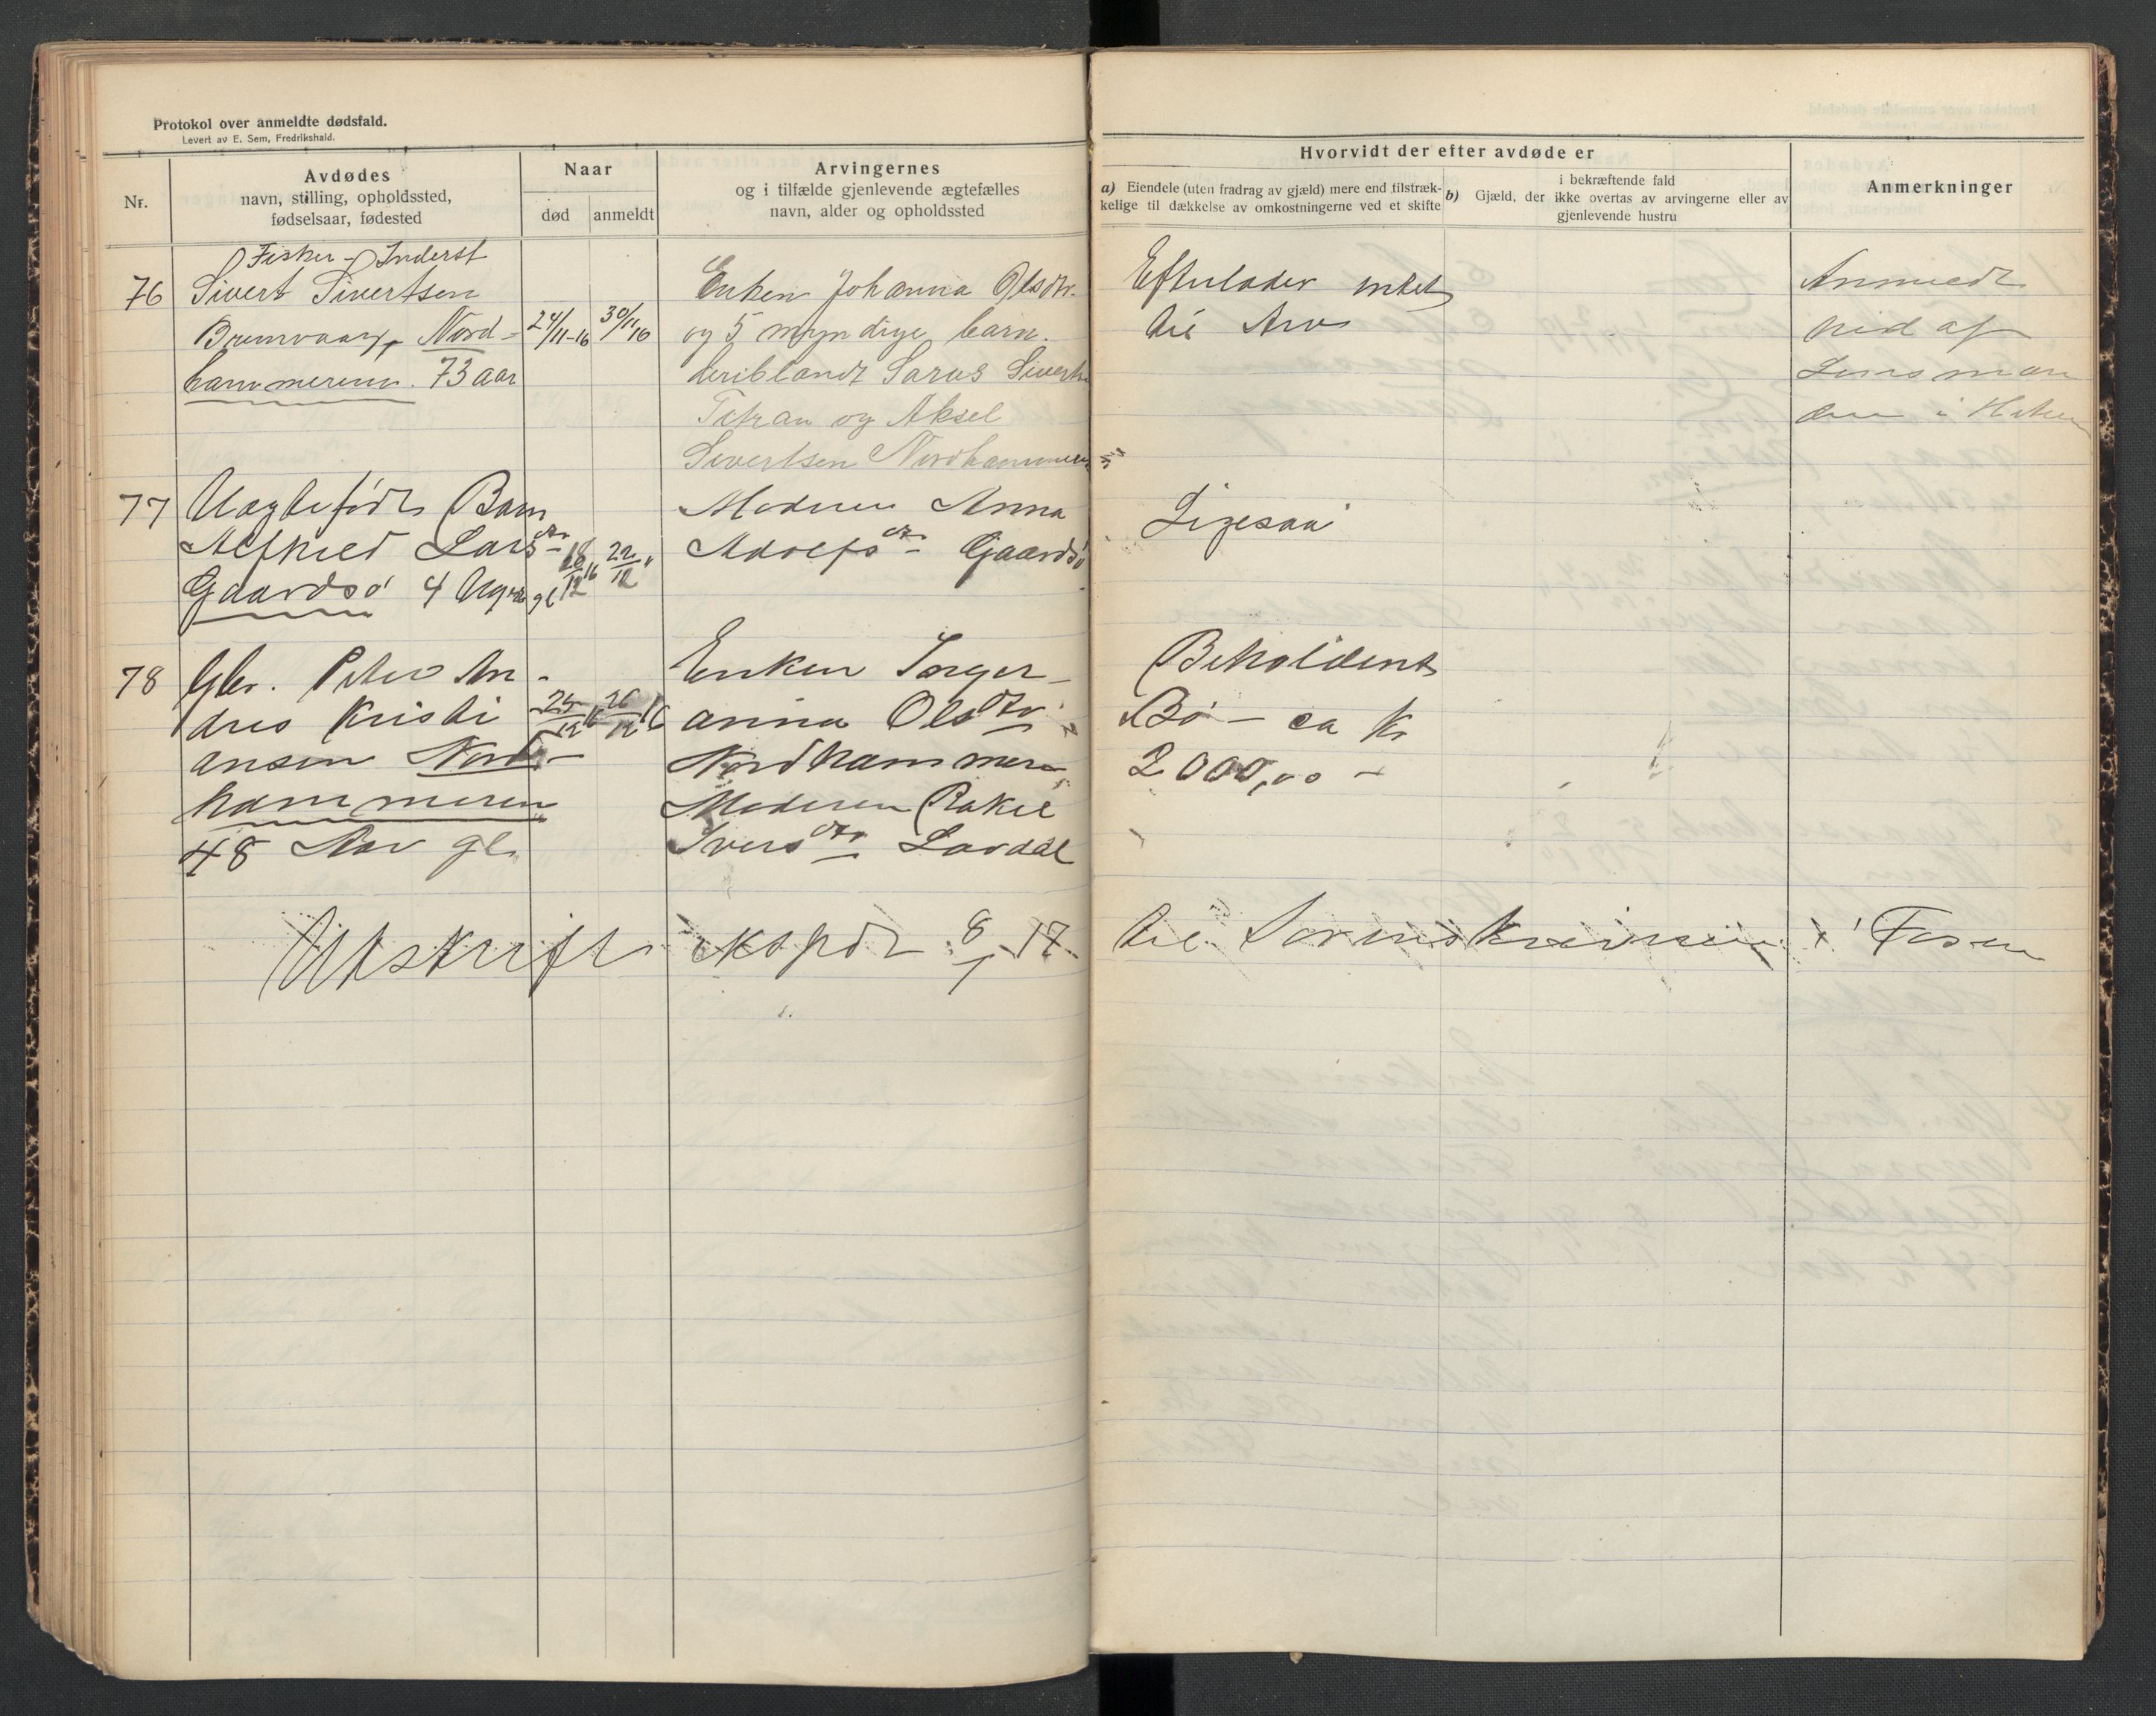 Protokol over anmeldte dødsfald.
Levert av E. Sem, Fredrikshald.
Nr.
Avdødes
navn, stilling, opholdssted,
fødselsaar, fødested
Naar
død
anmeldt
Arvingernes
og i tilfælde gjenlevende ægtefælles
navn, alder og opholdssted
Hvorvidt der efter avdøde er
a) Eiendele (uten fradrag av gjæld) mere end tilstræk-
kelige til dækkelse av omkostningerne ved et skifte
i bekræftende fald
b) Gjæld, der ikke overtas av arvingerne eller av
gjenlevende hustru
Anmerkninger
Fisker - Inderst
76 Sivert Sivertsen
Nord-
hammeren. 73 aar
24/11-16
30/11 16
Enken Johanna Olsdtr.
og 5 myndige barn.
deriblandt Sivert
Titran og Aksel
Sivertsen Nordhammeren
Efterlader intet
til Arv
Anmeldt
hid af
Lensman
den i
77 Uægtefødt Barn
Alfhild Larsdtr
Gaardsø 4 Uger gl
18/12 16
22/12 "
Moderen Anna
Adolfsdtr Gaardsø
Ligesaa
78 Gbr. Peter An-
dreas Kristi
ansen Nord-
hammeren
48 Aar gl.
25/12 16
26/12 16
Enken Inger-
anna Olsdtr
Nordhammeren
Moderen Rakel
Iversdtr Lavdal
Beholdent
Bo - ca kr
2000,00 -
Utskrift ekspdt 8/1 17. til Sorenskriveren i Fosen